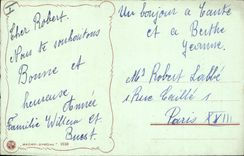 Cher Robert.
Nous te souhaitons
Bonne et
heureuse Année
Famille Willem et
Un bonjour a Tante
et a Berthe
Jeanne.
Mr Robert Labbé
1 Rue Caillé 1
Paris XVIII